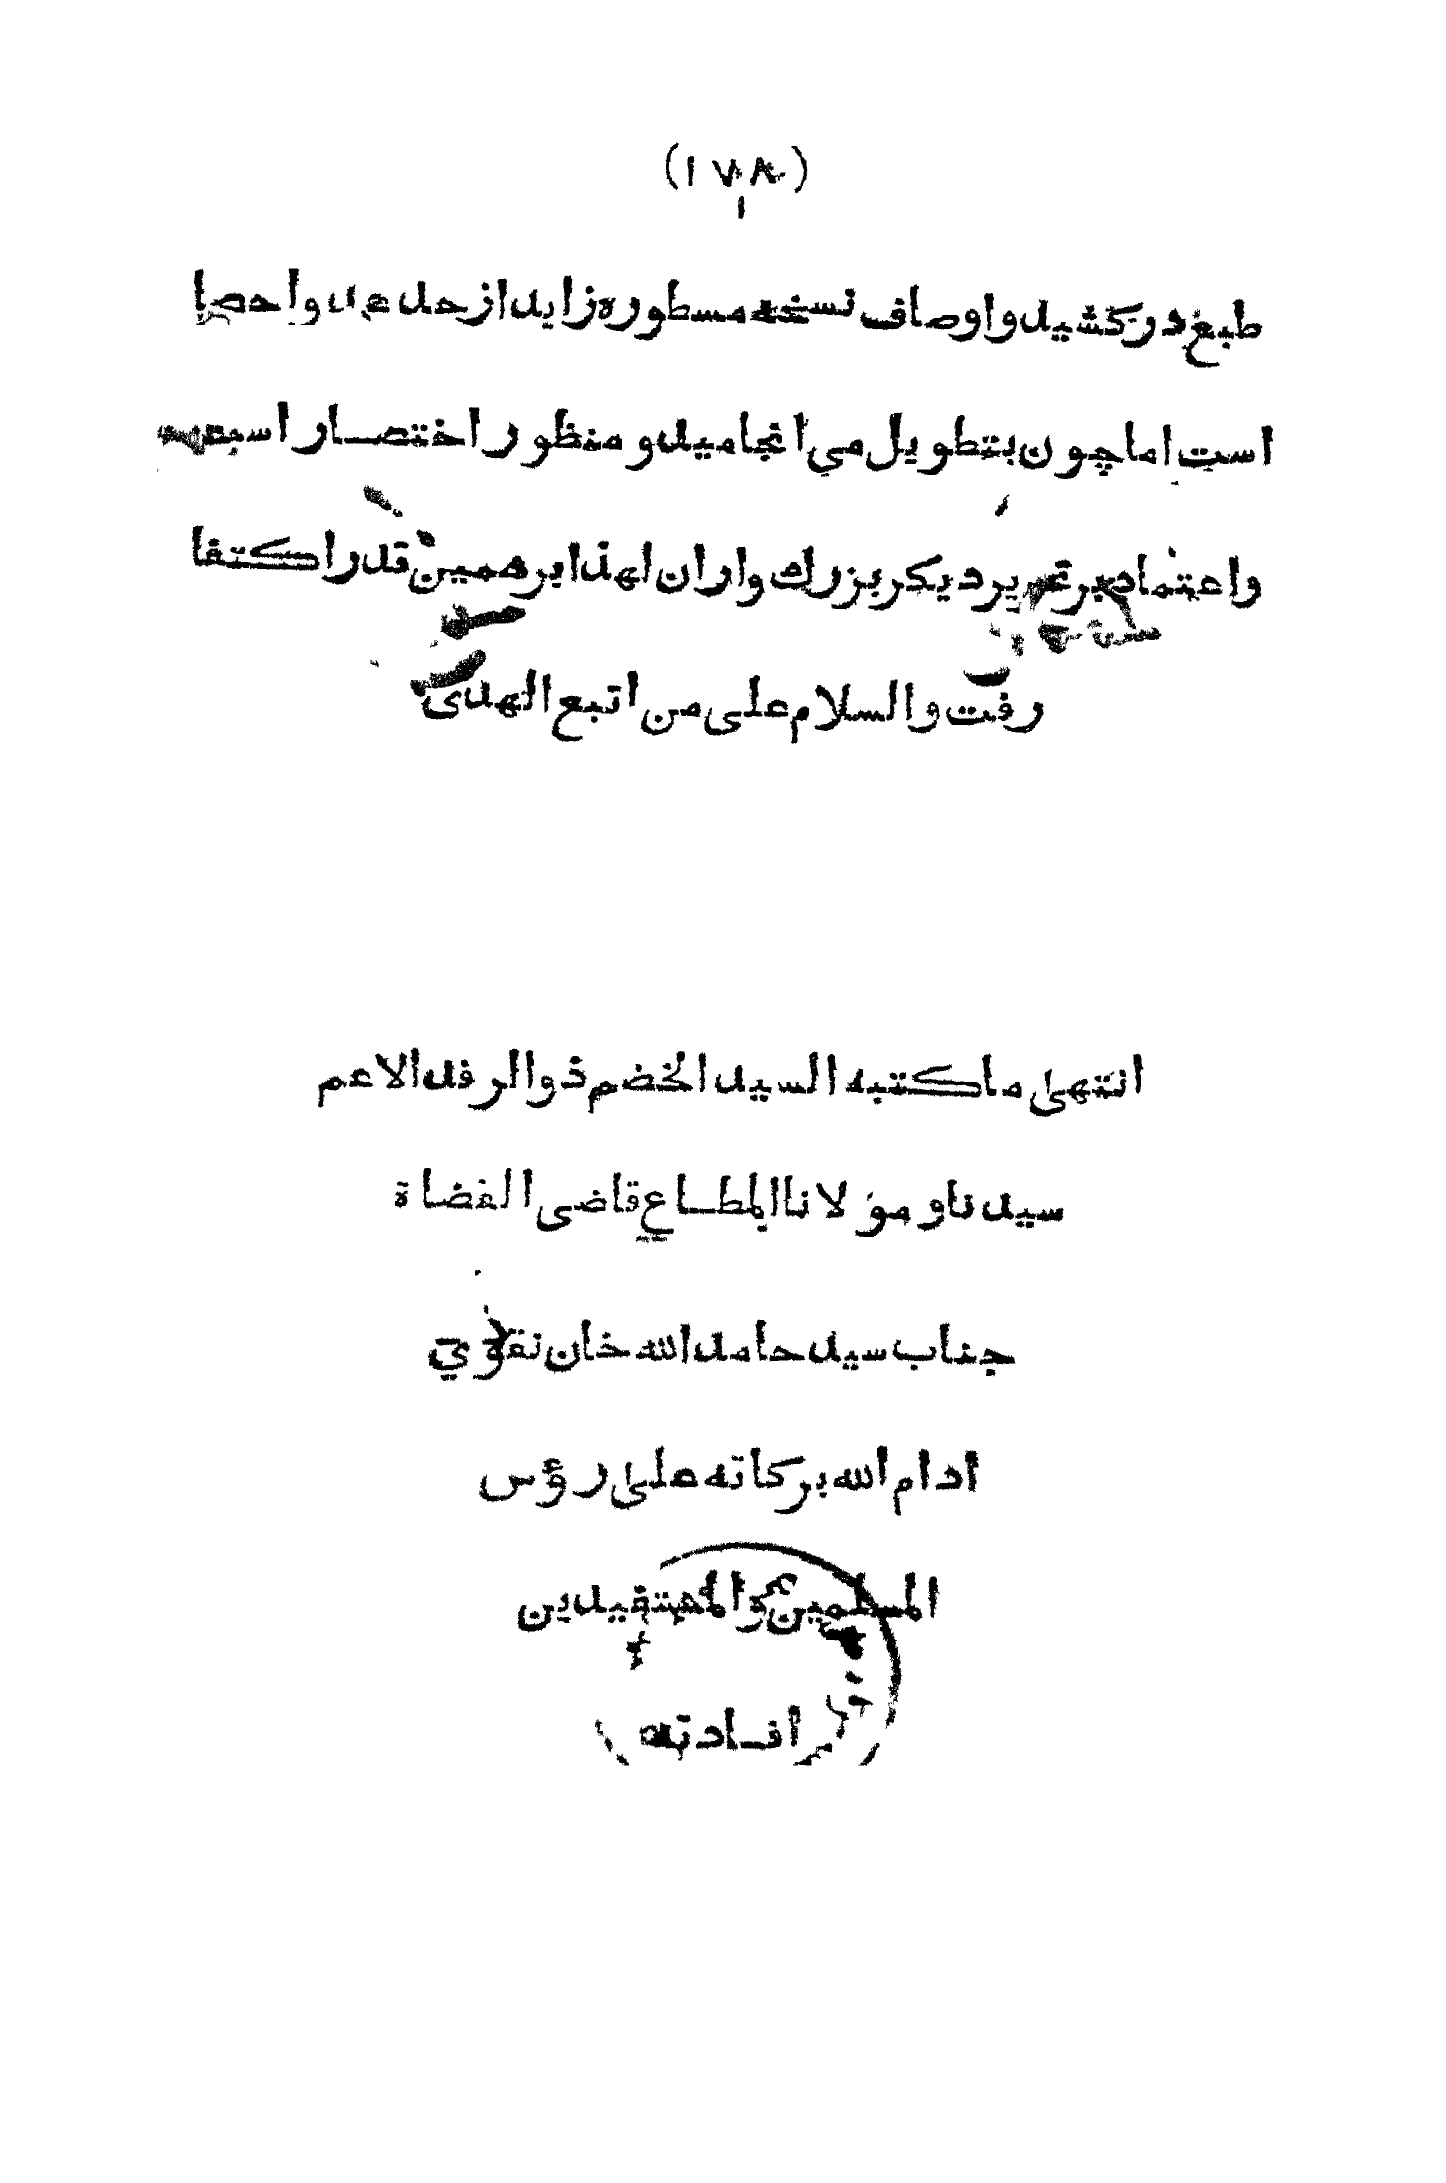 (۱۷۸)
طبع در کشید و اوصاف نسخه مسطوره زاید از حد عد و احصا
است اما چون بتطویل می انجامید و منظور اختصار است
و اعتماد بر تحریر دیکر بزرك واران لهذا بر همین قدر اکتفا
رفت والسلام علی من اتبع الهدی
انتهیٰ ما کتبه السید الخضم ذو الرفد الاعم
سیدنا و مولانا المطاع قاضی القضاة
جناب سید حامد الله خان نقوي
ادام الله برکاته علیٰ رؤس
المسلمین و المستفیدین
افادته